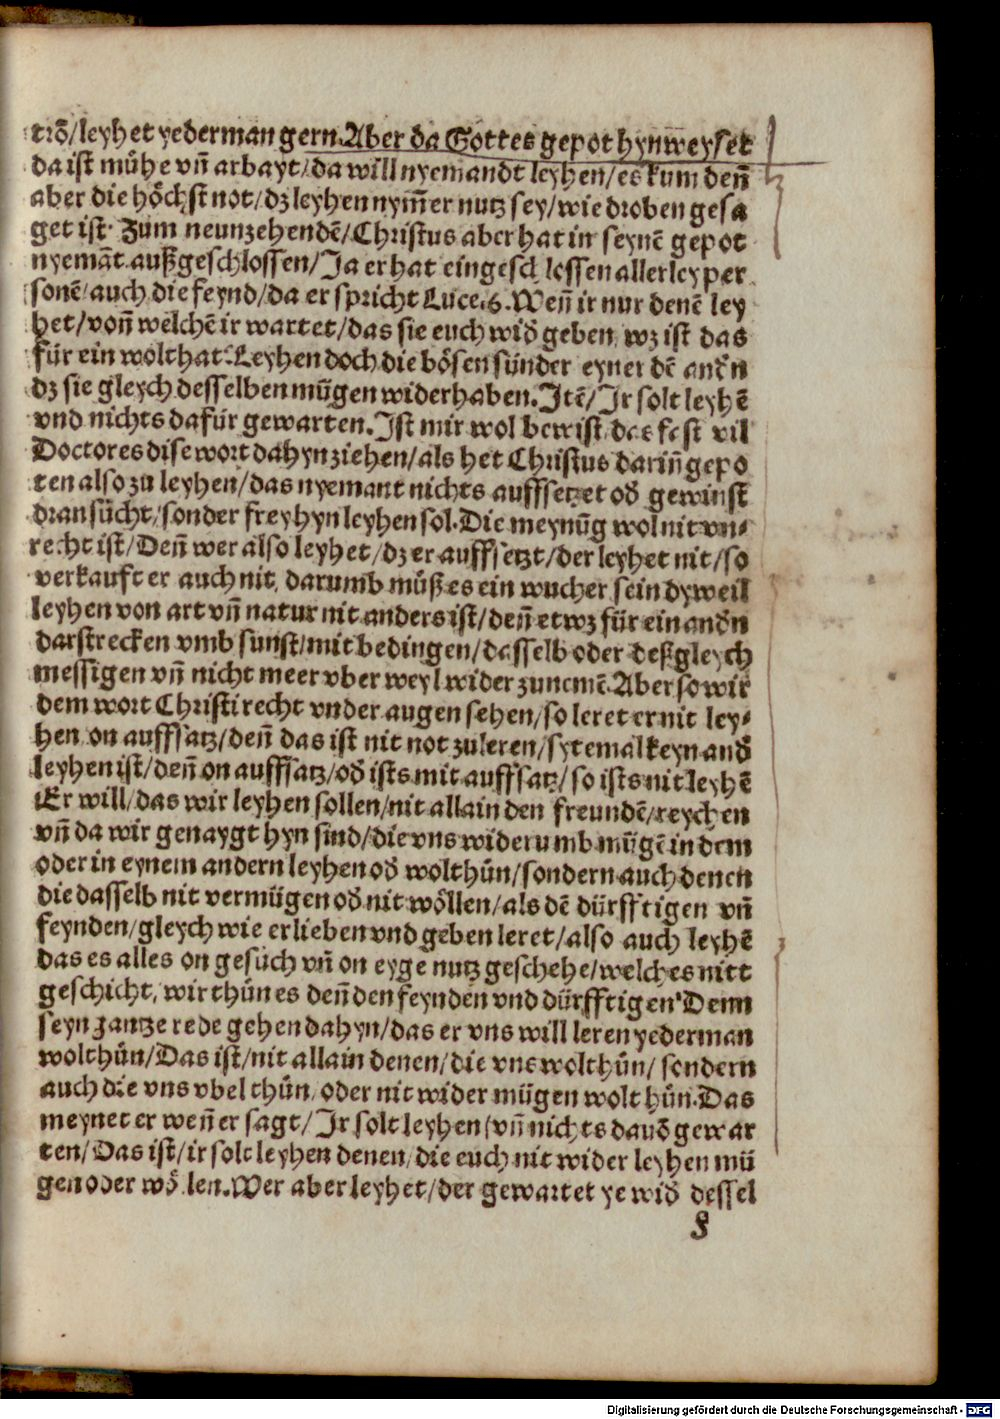 trõ/leyhet yederman gern. Aber da Gottes gepot hynweyset
da ist můhe vñ arbayt/da will nyemandt leyhen/es kum deñ
aber die höchst not/dz leyhen nym̃er nutz sey/wie droben gesa
get ist. Zum neunzehendẽ/Christus aber hat in seynẽ gepot
nyemãt außgeschlossen/Ja er hat eingeschlossen allerley per
sonẽ/auch die feynd/da er spricht Luce. 6. Weñ ir nur denẽ ley
het/von welchẽ ir wartet/das sie euch wid̃ geben, wz ist das
für ein wolthat? Leyhen doch die bösen sünder eyner dẽ and̃n
dz sie gleych desselben mügen widerhaben. Itẽ/Ir solt leyhẽ
vnd nichts dafür gewarten. Ist mir wol bewist das fast vil
Doctores dise wort dahyn ziehen/als het Christus dariñ gepo
ten also zu leyhen/das nyemant nichts auffsetzet od̃ gewinst
dran sücht/sonder frey hyn leyhen sol. Die meynũg wol nit vn⸗
recht ist/Deñ wer also leyhet/dz er auffsetzt/der leyhet nit/so
verkauft er auch nit, darumb můß es ein wucher sein dyweil
leyhen von art vñ natur nit anders ist/deñ etwz für ein and̃n
darstrecken vmb sunst/mit bedingen/dasselb oder deßgleych
messigen vñ nicht meer vber weyl wider zunemẽ. Aber so wir
dem wort Christi recht vnder augen sehen/so leret er nit ley⸗
hen on auffsatz/deñ das ist nit not zu leren/sytemal keyn and̃
leyhen ist/deñ on auffsatz/od̃ ists mit auffsatz/so ists nit leyhẽ
Er will/das wir leyhen sollen/nit allain den freundẽ/reychen
vñ da wir genaygt hyn sind/die vns widerumb mügẽ in dem
oder in eynem andern leyhen od̃ wolthůn/sondern auch denen
die dasselb nit vermügen od̃ nit wöllen/als dẽ dürfftigen vñ
feynden/gleych wie er lieben vnd geben leret/also auch leyhẽ
das es alles on gesůch vñ on eyge nutz geschehe/welches nitt
geschicht, wir thůn es deñ den feynden vnd dürfftigen. Denn
seyn gantze rede gehen dahyn/das er vns will leren yederman
wolthůn/Das ist/nit allain denen/die vns wolthůn/sondern
auch die vns vbel thůn/oder nit wider mügen wolthůn. Das
meynet er weñ er sagt/Ir solt leyhen/vñ nichts dauõ gewar
ten/Das ist/ir solt leyhen denen/die euch nit wider leyhen mü
gen oder wöllen. Wer aber leyhet/der gewartet ye wid̃ dessel
Digitalisierung gefördert durch die Deutsche Forschungsgemeinschaft - DFG